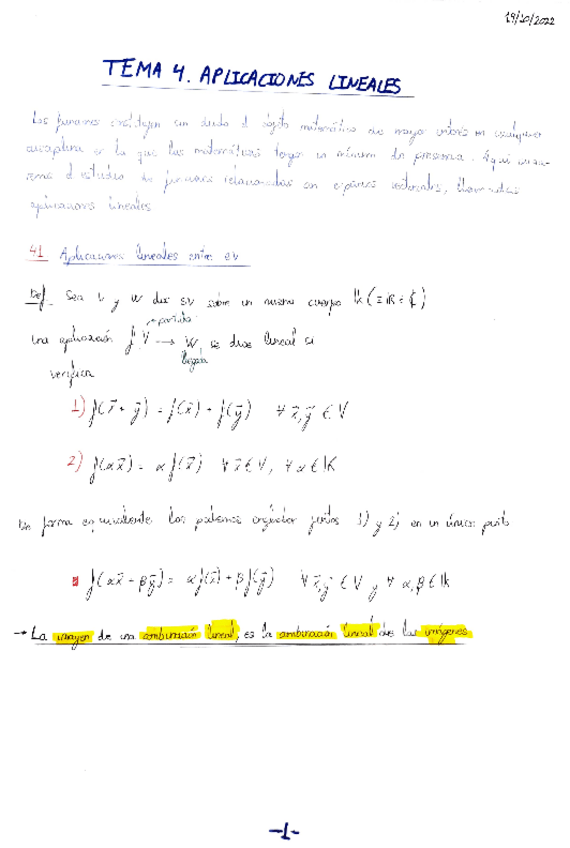 19/10/2022
TEMA 4. APLICACIONES LINEALES
Las funciones constituyen sin duda el objeto matemático de mayor interés en cualquier
disciplina en la que las matemáticas tengan un mínimo de presencia. Aquí
el estudio de funciones relacionadas con espacios vectoriales, llamadas
aplicaciones lineales
4.1 Aplicaciones lineales entre EV
Def. Sea V y W dos EV sobre un mismo cuerpo K (= R o C)
partida
Una aplicación f: V → W, se dice lineal si
llegada
verifica
1) f(x⃗ + y⃗) = f(x⃗) + f(y⃗) ∀ x⃗, y⃗ ∈ V
2) f(αx⃗) = αf(x⃗) ∀ x⃗ ∈ V, ∀ α ∈ K
De forma equivalente los podemos englobar juntos 1) y 2) en un único punto
f(αx⃗ + βy⃗) = αf(x⃗) + βf(y⃗) ∀ x⃗, y⃗ ∈ V y ∀ α, β ∈ K
→ La imagen de una combinación lineal, es la combinación lineal de las imágenes
-1-